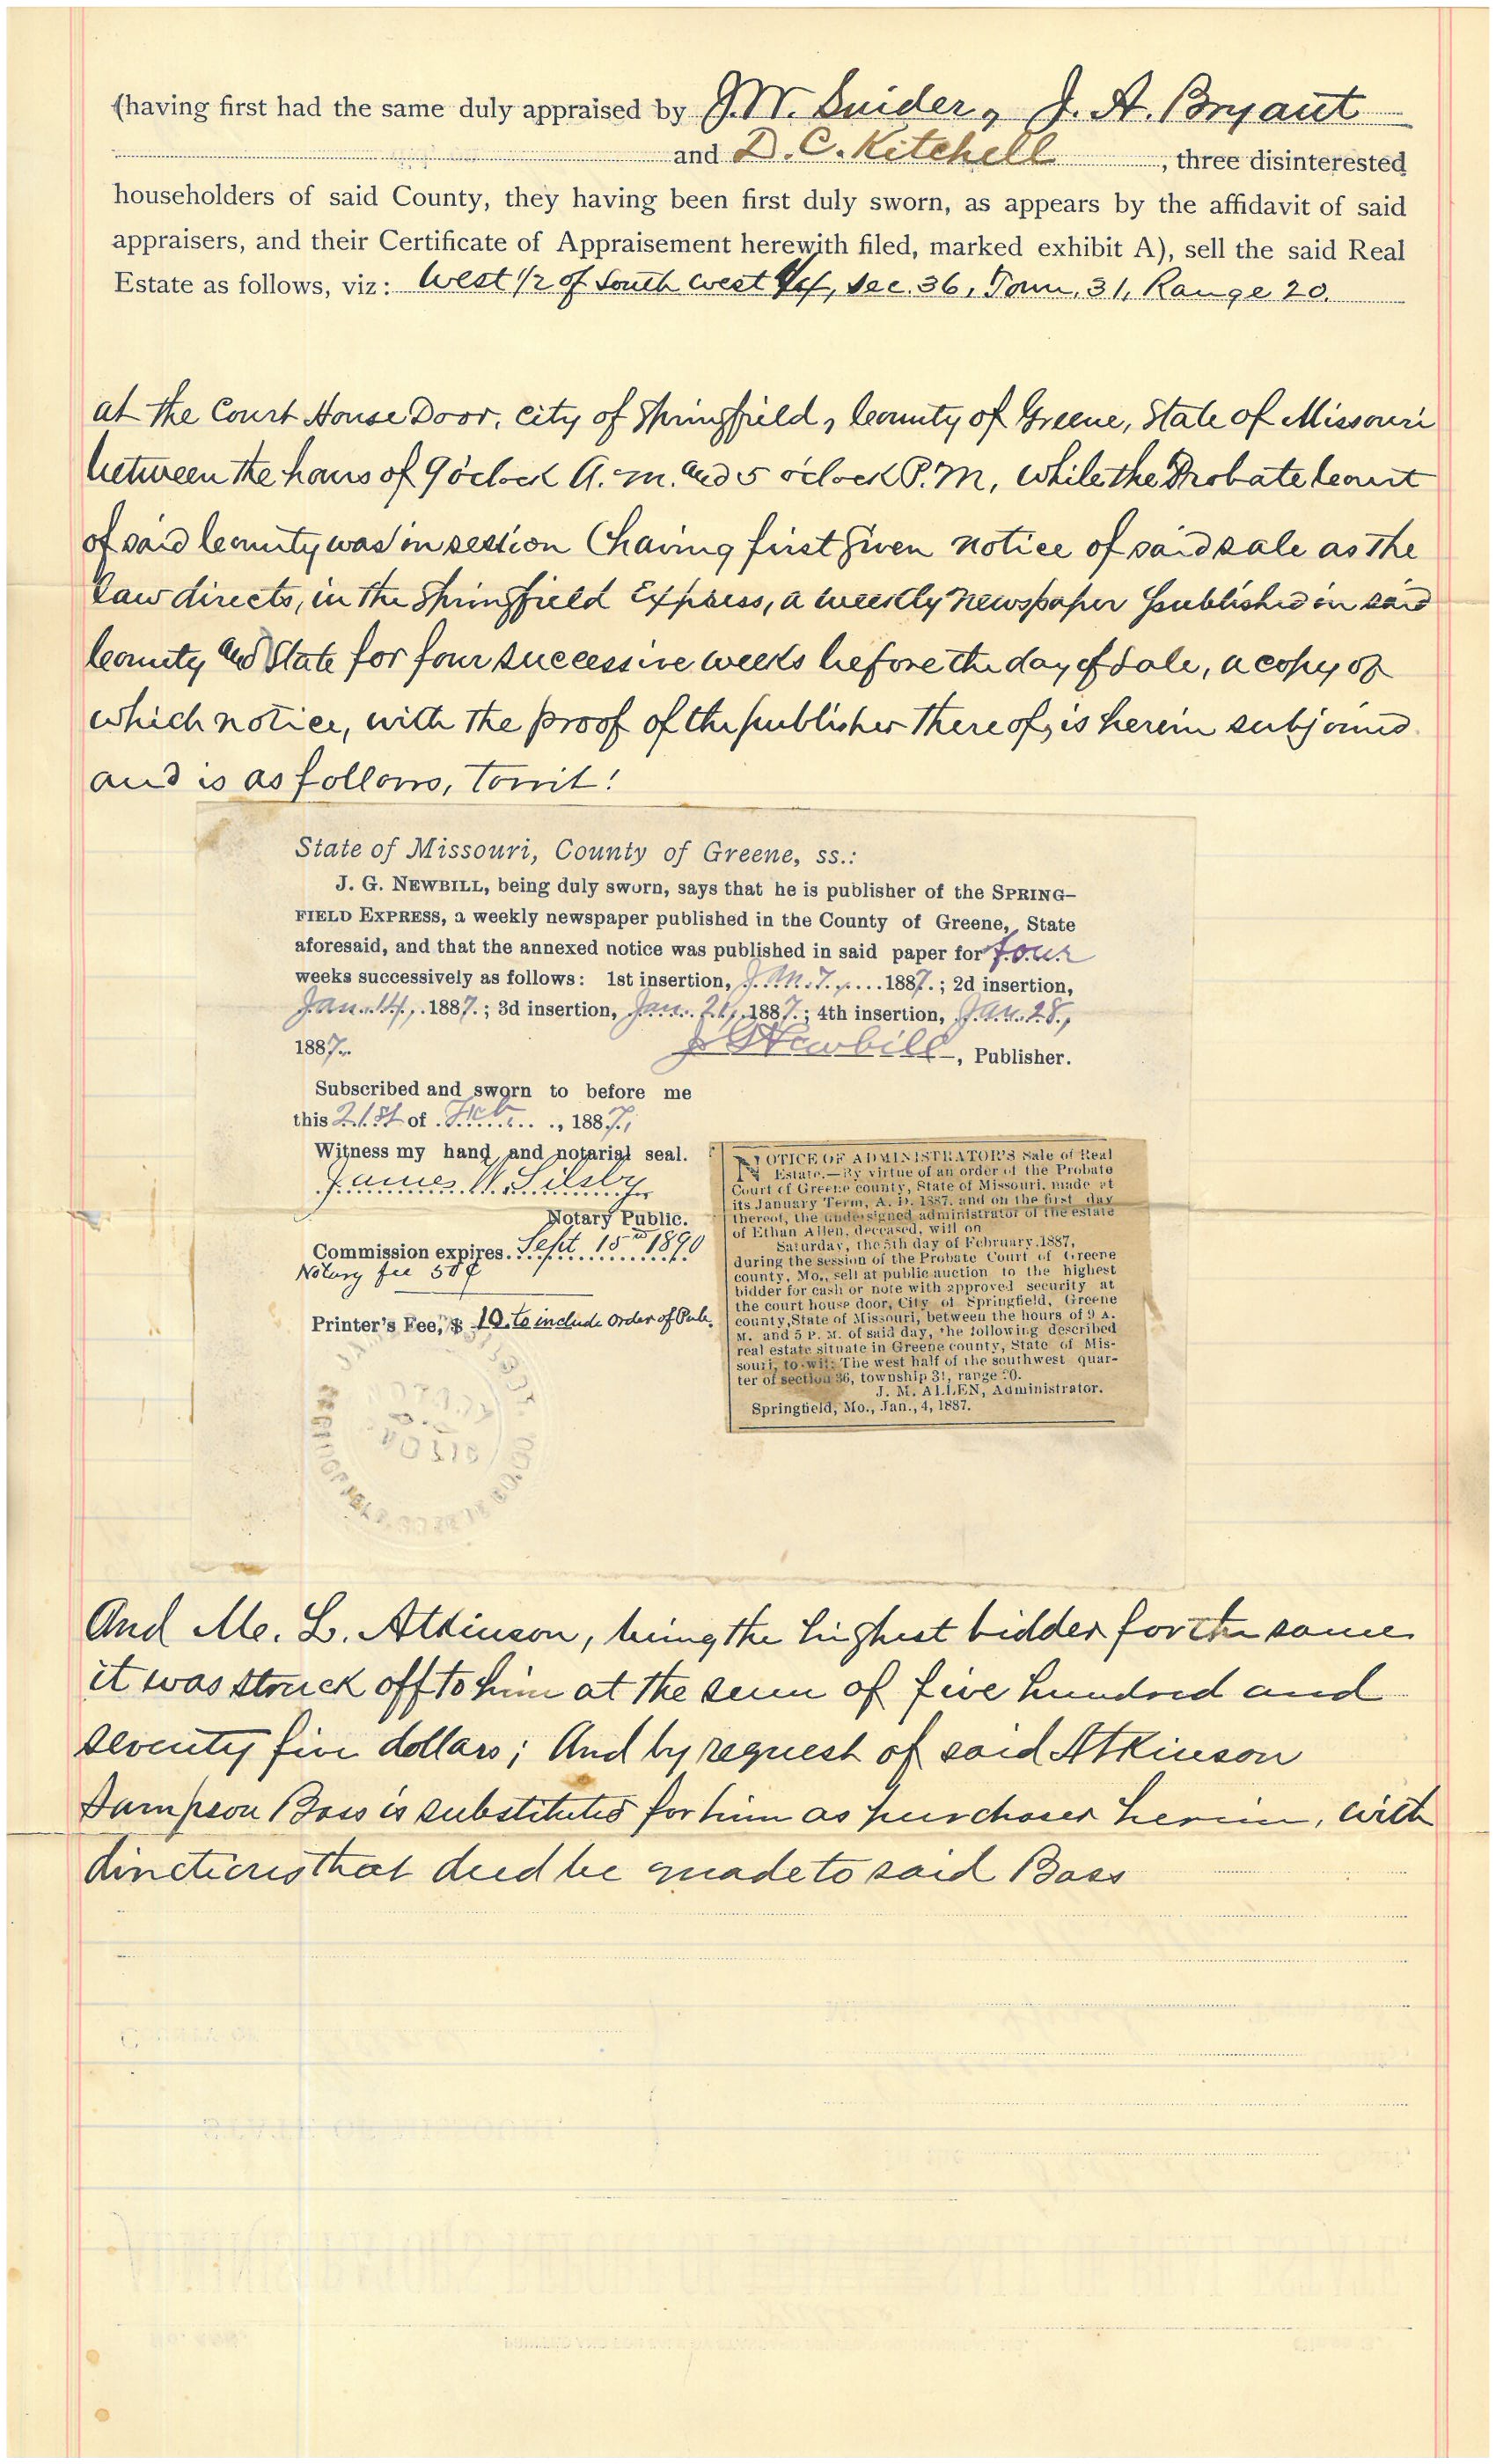 (having first had the same duly appraised by J.W. Snider, J. A. Bryant
and D. C. Kitchell, three disinterested
householders of said County, they having been first duly sworn, as appears by the affidavit of said
appraisers, and their Certificate of Appraisement herewith filed, marked exhibit A), sell the said Real
Estate as follows, viz: West 1/2 of South west 1/4, Sec. 36, Town, 31, Range 20.
at the Court House Door, City of Springfield, County of Greene, State of Missouri
between the hours of 9 o'clock A. M. and 5 o'clock P.M, while the Probate Court
of said County was in session (having first given notice of said sale as the
law directs, in the Springfield Express, a weekly newspaper published in said
County and State for four successive weeks before the day of sale, a copy of
which notice, with the proof of the publisher thereof, is herein subjoined
and is as follows, towit!
State of Missouri, County of Greene, ss.:
J. G. NEWBILL, being duly sworn, says that he is publisher of the SPRING-
FIELD EXPRESS, a weekly newspaper published in the County of Greene, State
aforesaid, and that the annexed notice was published in said paper for four
weeks successively as follows: 1st insertion, Jan. 7, 1887.; 2d insertion,
Jan. 14, 1887.; 3d insertion, Jan. 21, 1887.; 4th insertion, Jan. 28,
1887.
J G Newbill, Publisher.
Subscribed and sworn to before me
this 21st of Feb, 1887,
Witness my hand and notarial seal.
James W. Silsby
Notary Public.
Commission expires. Sept 15th 1890
Notary fee 50¢
Printer's Fee, $ 10. to include order of Pub.
NOTICE OF ADMINISTRATOR'S Sale of Real
Estate.—By virtue of an order of the Probate
Court of Greene county, State of Missouri, made at
its January Term, A. D. 1887, and on the first day
thereof, the undersigned administrator of the estate
of Ethan Allen, deceased, will on
Saturday, the 5th day of February, 1887,
during the session of the Probate Court of Greene
county, Mo., sell at public auction to the highest
bidder for cash or note with approved security at
the court house door, City of Springfield, Greene
county, State of Missouri, between the hours of 9 A.
M. and 5 P. M. of said day, the following described
real estate situate in Greene county, State of Mis-
souri, to-wit: The west half of the southwest quar-
ter of section 36, township 31, range 20.
J. M. ALLEN, Administrator.
Springfield, Mo., Jan., 4, 1887.
And M. L. Atkinson, being the highest bidder for the same
it was struck off to him at the sum of five hundred and
seventy five dollars; And by request of said Atkinson
Sampson Bass is substituted for him as purchaser herein, with
directions that deed be made to said Bass